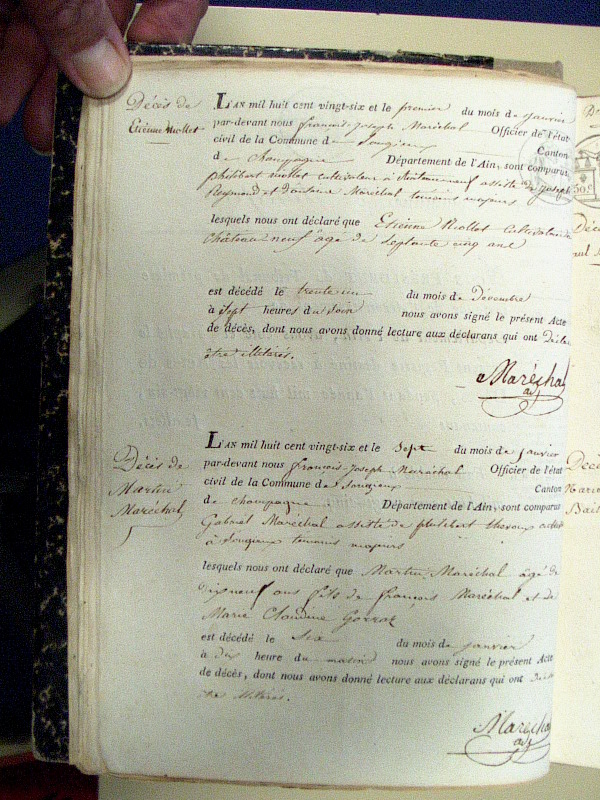 Décès de
Etienne Mollet
L'AN mil huit cent vingt-six et le premier du mois de janvier
par-devant nous françois-Joseph Maréchal Officier de l'état
civil de la Commune de Songieu Canton
de Champagne Département de l'Ain, sont comparus
philibert mollet cultivateur à assisté de joseph
Reymond et d'antoine Maréchal temoins majeurs
lesquels nous ont déclaré que Etienne Mollet cultivateur
Châteauneuf âgé de septante cinq ans
est décédé le trente un du mois de Décembre
à sept heures du soir nous avons signé le présent Acte
de décès, dont nous avons donné lecture aux déclarans qui ont
être illitérés.
Maréchal
Décès de
Martin
Maréchal
L'AN mil huit cent vingt-six et le sept du mois de janvier
par-devant nous françois-Joseph Maréchal Officier de l'état
civil de la Commune de Songieu Canton
de champagne Département de l'Ain, sont comparus
Gabriel Maréchal assisté de philibert
à Songieu temoins majeurs
lesquels nous ont déclaré que Martin Maréchal âgé de
dixneuf ans fils de françois Maréchal et de
Marie Claudine
est décédé le six du mois de janvier
à dix heure du matin nous avons signé le présent Acte
de décès, dont nous avons donné lecture aux déclarans qui ont
être illitérés.
Maréchal